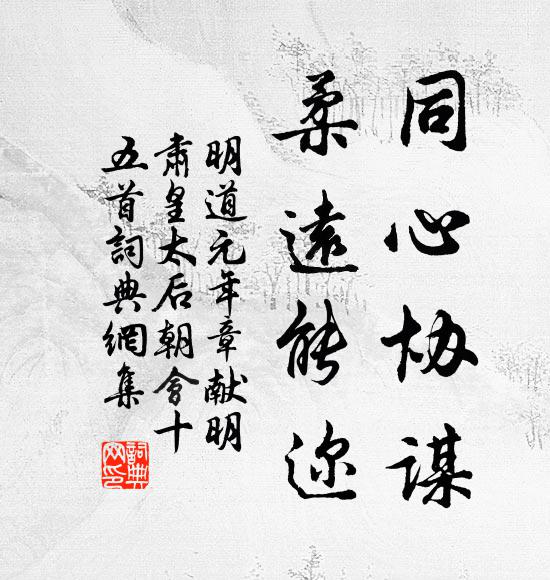 同心协謀
柔遠能迩
明道元年章献明
肅皇太后朝會十
五首詞典網集
詞典
网印